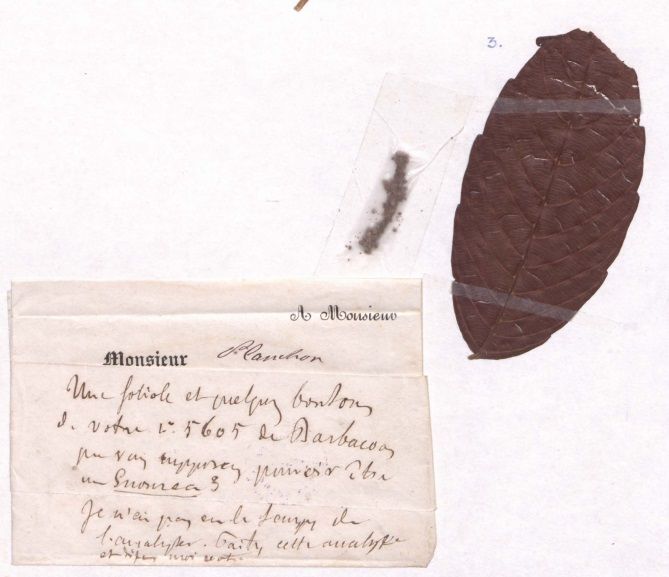 3.
A Monsieur
Monsieur Planchon
Une foliole et quelques boutons
de votre n° 5605 de Barbacoas
que vous supposez pouvoir être
un Snowrea 3
Je n'ai pas eu le temps de
l'analyser. Faites cette analyse
et dites moi